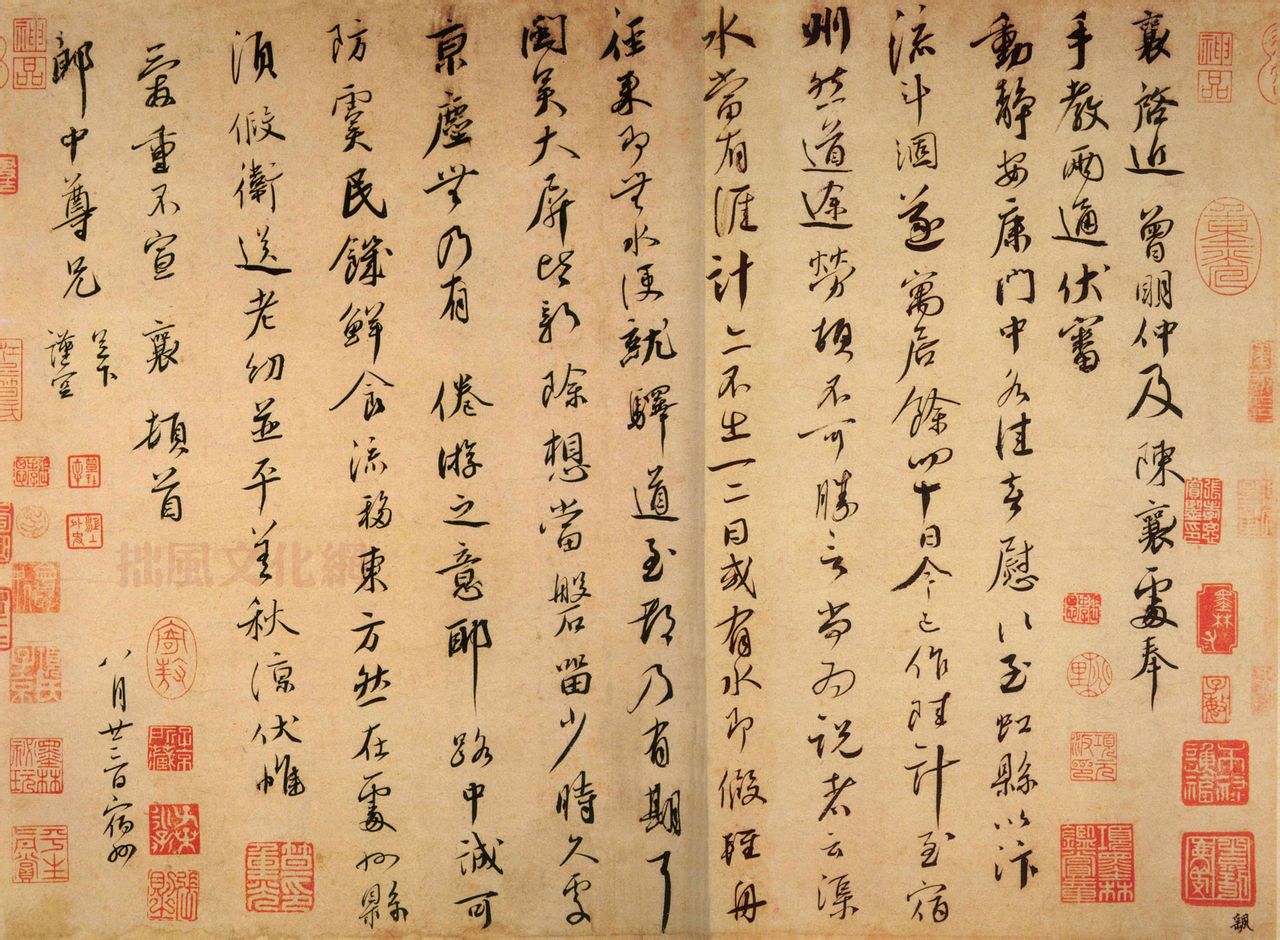 襄啓近曾明仲及陳襄處奉
手教兩通伏審
動靜安康門中各佳喜慰以至虹縣以汴
流斗涸遂寓居餘四十日今已作陸計至宿
州然道途勞頓不可勝言尚為說者云渠
水當有涯計亦不出一二日或有水即假輕舟
徑來即無水便就驛道至都乃有期耳
閩吳大屏皆新除想當磐石留少時久處
京塵無乃有倦游之意耶路中誠可
防虞民饑鮮食流移東方然在處州縣
須假衛送老幼並平善秋涼伏惟
愛重不宣襄頓首
郎中尊兄足下
謹空
八月廿三日宿州
神品
神品
拙風文化網